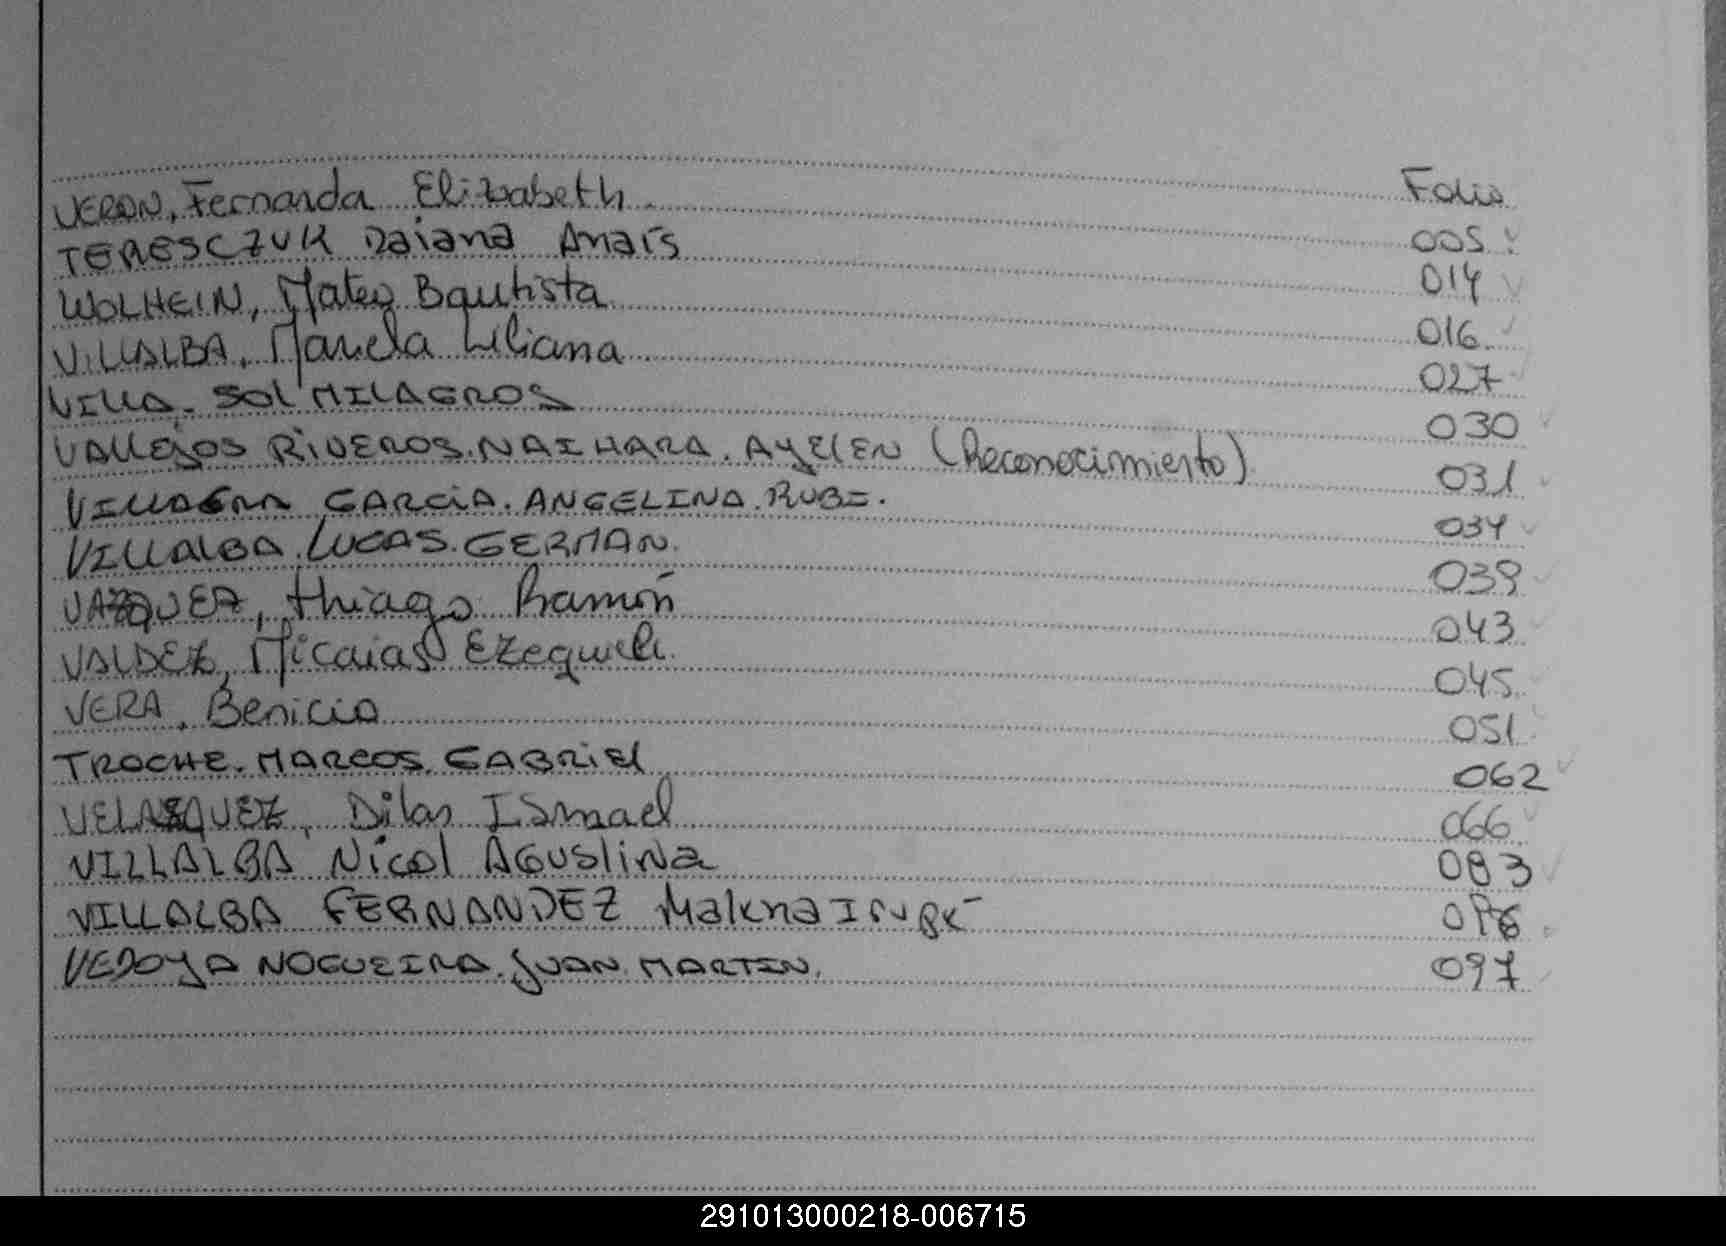 Folio
VERON, Fernanda Elizabeth 005
TERESCZUK Daiana Anaís 014
WOLHEIN, Mateo Bautista 016
VILLALBA, Mariela Liliana 027
VILLA. SOL MILAGROS 030
VALLEJOS RIVEROS. NAIHARA. AYELEN (Reconocimiento) 031
VILLAGRA GARCIA. ANGELINA. RUBI. 034
VILLALBA. LUCAS. GERMAN. 039
VAZQUEZ, thiago Ramón 043
VALDEZ, Micaias Ezequiel. 045
VERA, Benicio 051
TROCHE. MARCOS. GABRIEL 062
VELAZQUEZ, Dilan ISmael 066
VILLALBA Nicol AGUStiNa 083
VILLALBA FERNANDEZ Malena IRUPE
VEDOYA NOGUEIRA. JUAN. MARTIN. 097
291013000218-006715